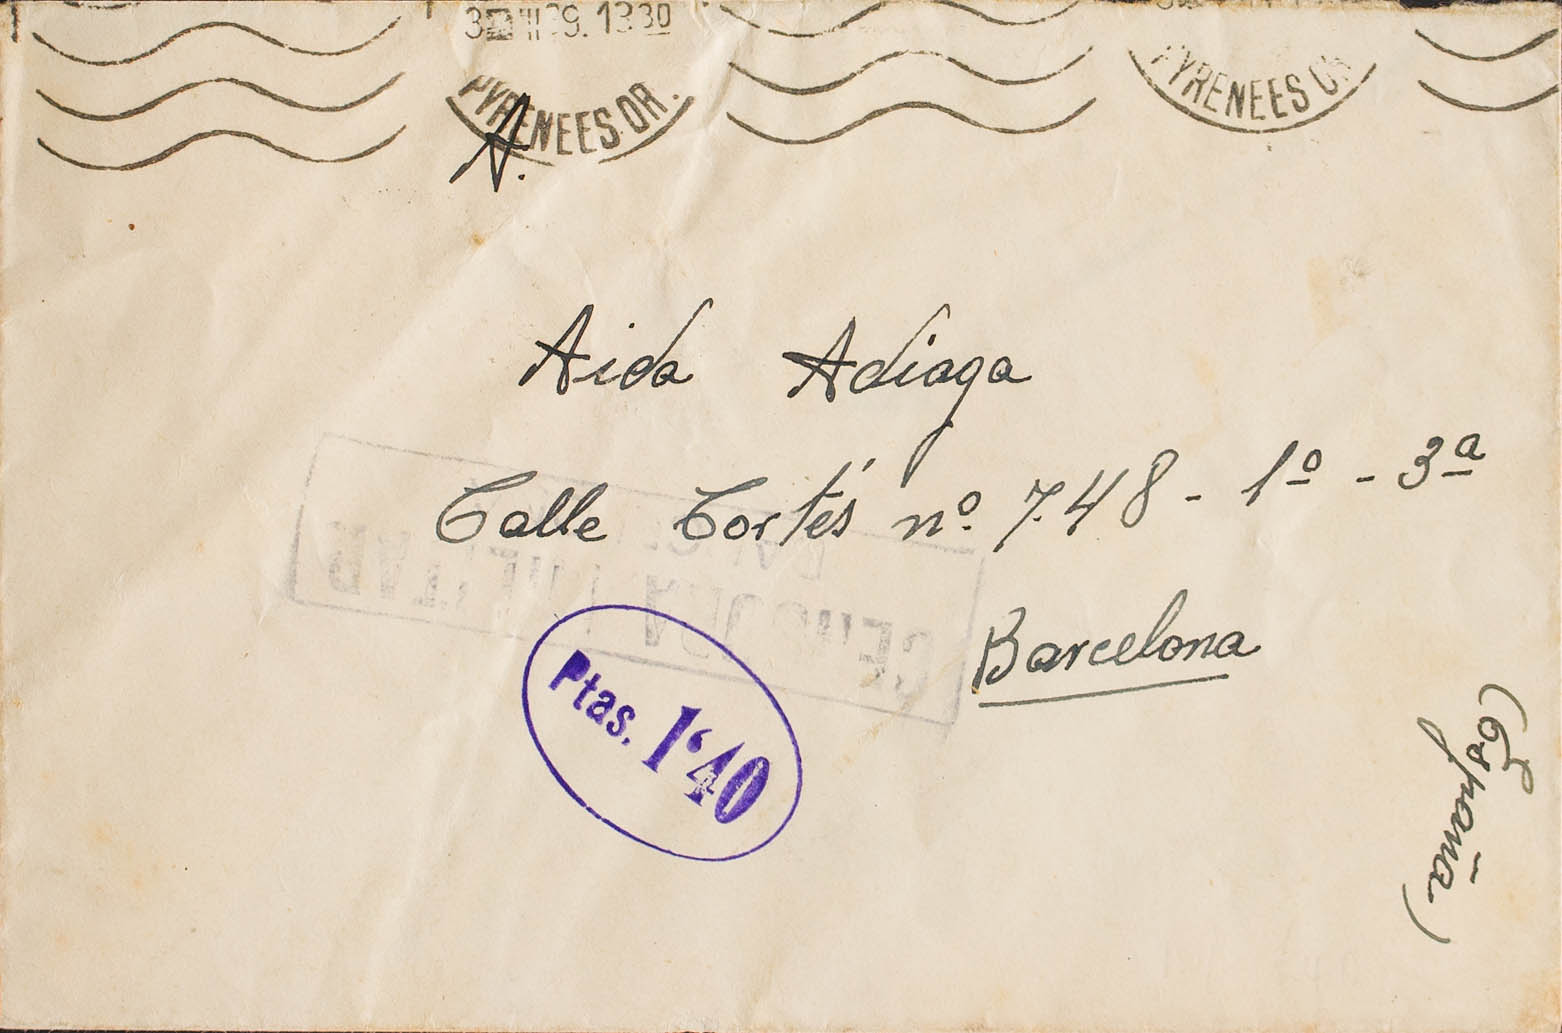 13 30
PYRENEES OR.
PYRENEES OR
A.
Aida Adiaga
Calle Cortés nº 748 - 1º - 3ª
Barcelona
(España)
CENSURA MILITAR
Ptas. 1'40